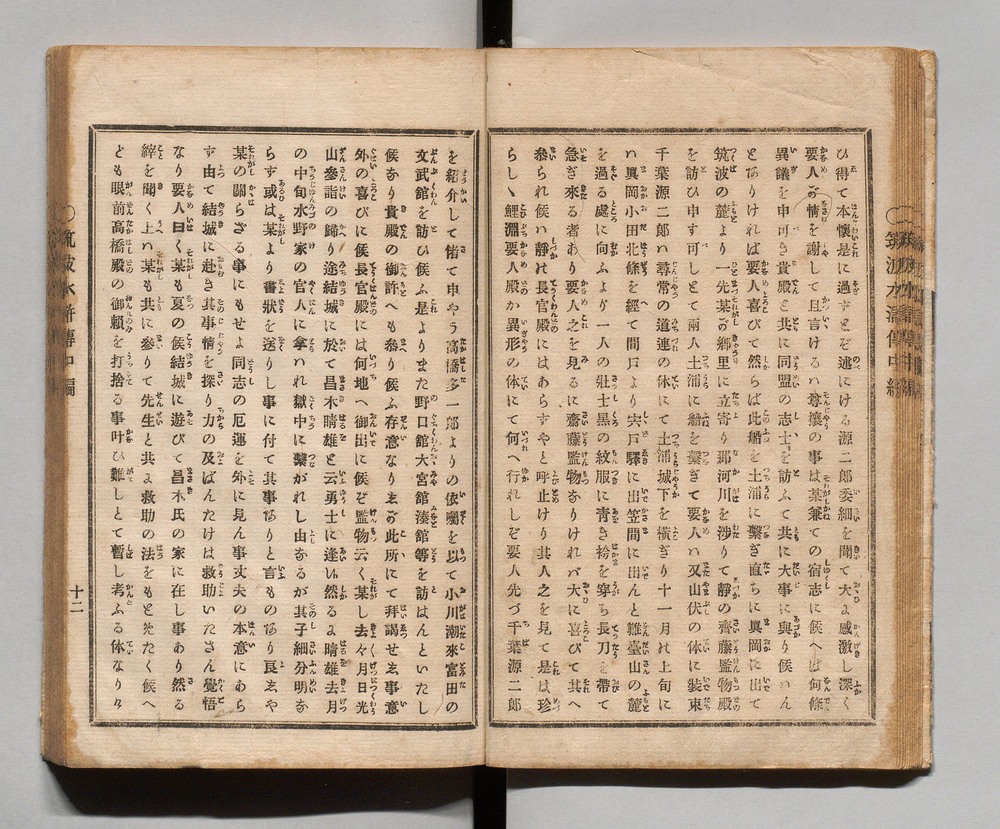 ひ得て本懷是に過ずとぞ述にける源二郎委細を聞て大よ感激し深く
要人が情を謝して且言けるハ尊攘の事は某兼ての宿志に候へば何條
異議を申可き貴殿と共に同盟の志士を訪ふて共に大事に與り候ハん
とありければ要人喜びて然らば此船を土浦に繫ぎ直ちに眞岡に出て
筑波の麓より一先某が鄕里に立寄り那河川を涉りて靜の齊藤監物殿
を訪ひ申す可しとて兩人土浦に船を繫ぎて要人ハ又山伏の体に裝束
千葉源二郎ハ尋常の道連の体にて土浦城下を橫ぎり十一月上旬に
ハ眞岡小田北條を經て間戸より宍戸驛に出笠間に出んと難臺山の麓
を過る處に向ふより一人の壯士黑の紋服に靑き袴を穿ち長刀を帶て
急ぎ來る者あり要人之を見るに齋藤監物ありけれバ大に喜びて其へ
叅られ候ハ靜の長官殿にはあらずやと呼止けり其人之を見て是は珍
らしゝ鯉淵要人殿か異形の体にて何へ行れしぞ要人先づ千葉源二郎
を紹介して偖て申やう高橋多一郎よりの依囑を以て小川潮來富田の
文武館を訪ひ候ふ是よりまた野口館大宮館湊館等を訪はんといたし
候あり貴殿の御許へも叅り候ふ存意なりまが此所にて拜謁せま事意
外の喜びに候長官殿には何地へ御出に候ぞ監物云く某し去々月日光
山參詣の歸り途結城に於て昌木晴雄と云勇士に逢ハ然るよ晴雄去月
の中旬水野家の官人に拿ハれ獄中に繫がれし由なるが其子細分明な
らず或は某より書狀を送りし事に付て其事ありと言ものあり良まや
某の關らざる事にもせよ同志の厄運を外に見ん事丈夫の本意にあら
ず由て結城に赴き其事情を探り力の及ばんたけは救助いたさん覺悟
なり要人曰く某も夏の候結城に遊びて昌木氏の家に在し事あり然る
緣を聞く上ハ某も共に參りて先生と共よ救助の法をもとめたく候へ
ども眼前高橋殿の御賴を打捨る事叶ひ難しとて暫し考ふる体なりゞ
筑波水滸傳中編
十二